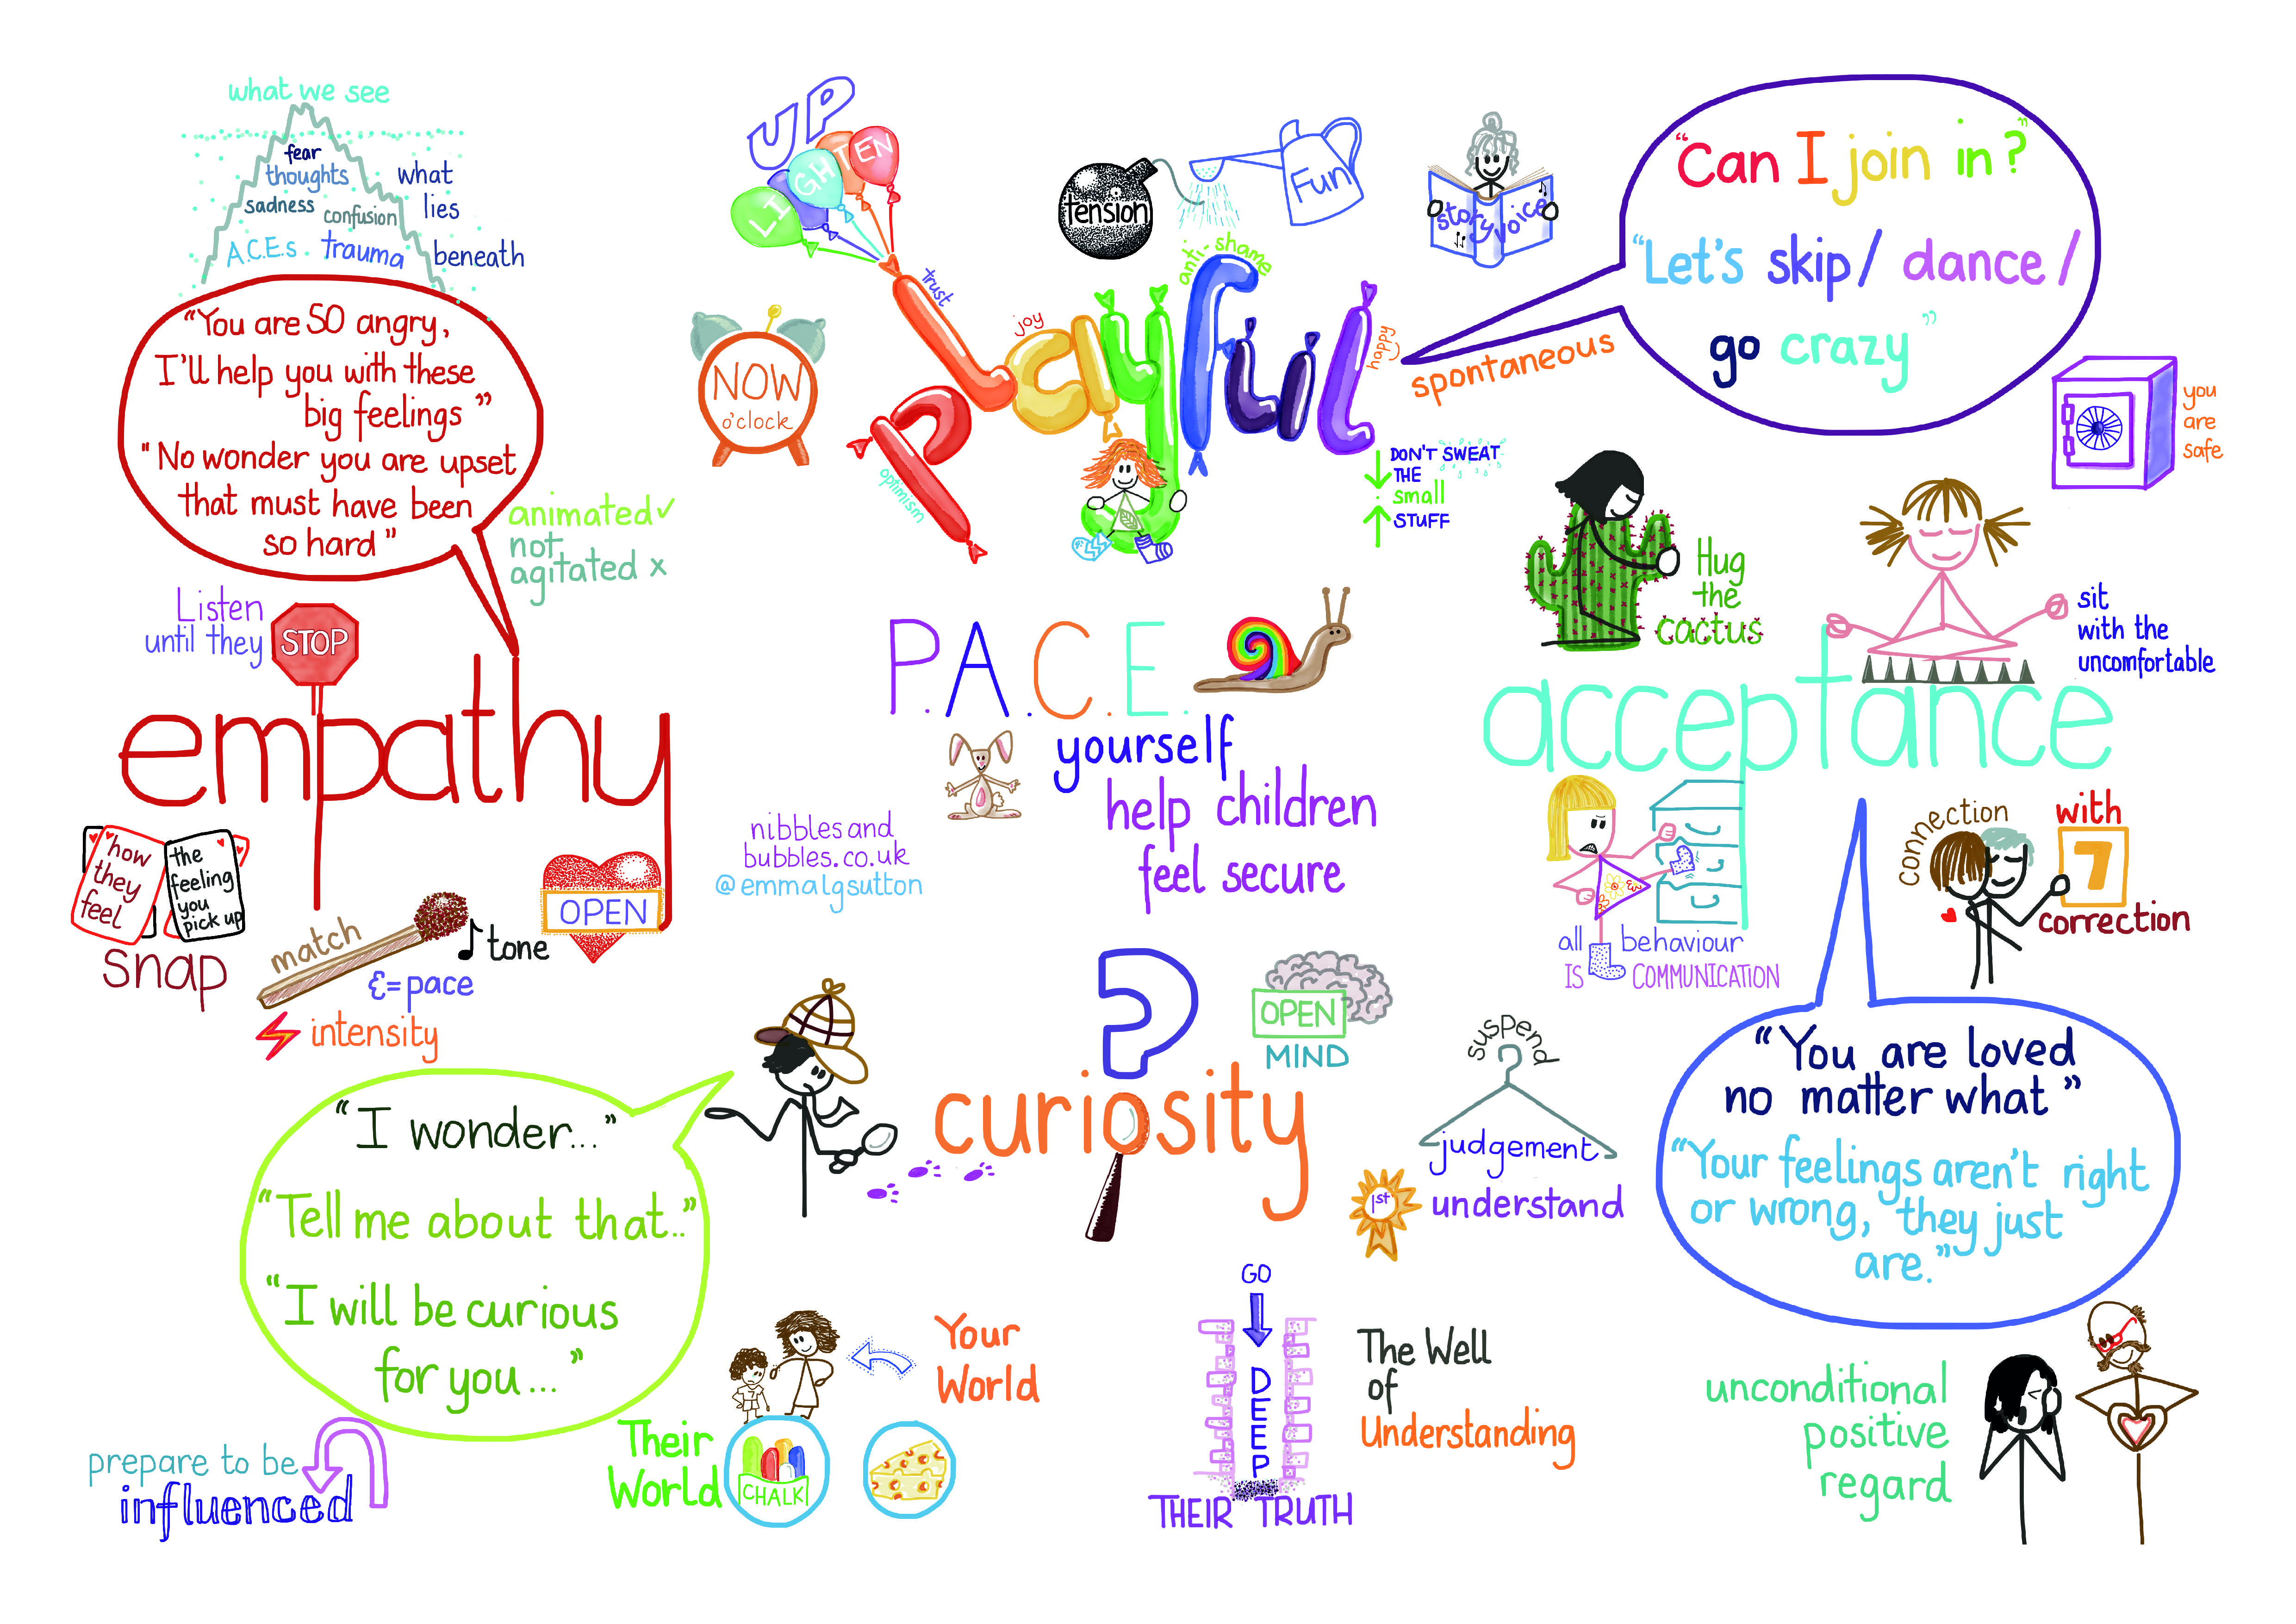 what we see
fear
thoughts
sadness
confusion
A.C.E.s. trauma
what
lies
beneath
"You are SO angry,
I'll help you with these
big feelings"
"No wonder you are upset
that must have been
so hard"
animated ✓
not
agitated x
Listen
until they
STOP
empathy
how
they
feel
the
feeling
you
pick up
snap
match
tone
=pace
intensity
OPEN
UP
LIGHTEN
tension
Fun
story voice
NOW
o'clock
Playful
trust
joy
anti-shame
happy
optimism
spontaneous
"Can I join in?"
"Let's skip/ dance/
go crazy"
DON'T SWEAT
THE
small
STUFF
you
are
safe
Hug
the
cactus
sit
with the
uncomfortable
acceptance
all behaviour
IS COMMUNICATION
connection
with
7
correction
"You are loved
no matter what"
"Your feelings aren't right
or wrong, they just
are."
unconditional
positive
regard
P.A.C.E.
yourself
help children
feel secure
nibbles and
bubbles.co.uk
@emmalgsutton
?
curiosity
OPEN
MIND
suspend
judgement
1st
understand
"I wonder..."
"Tell me about that.."
"I will be curious
for you..."
prepare to be
influenced
Your
World
Their
World
CHALK
GO
DEEP
THEIR TRUTH
The Well
of
Understanding